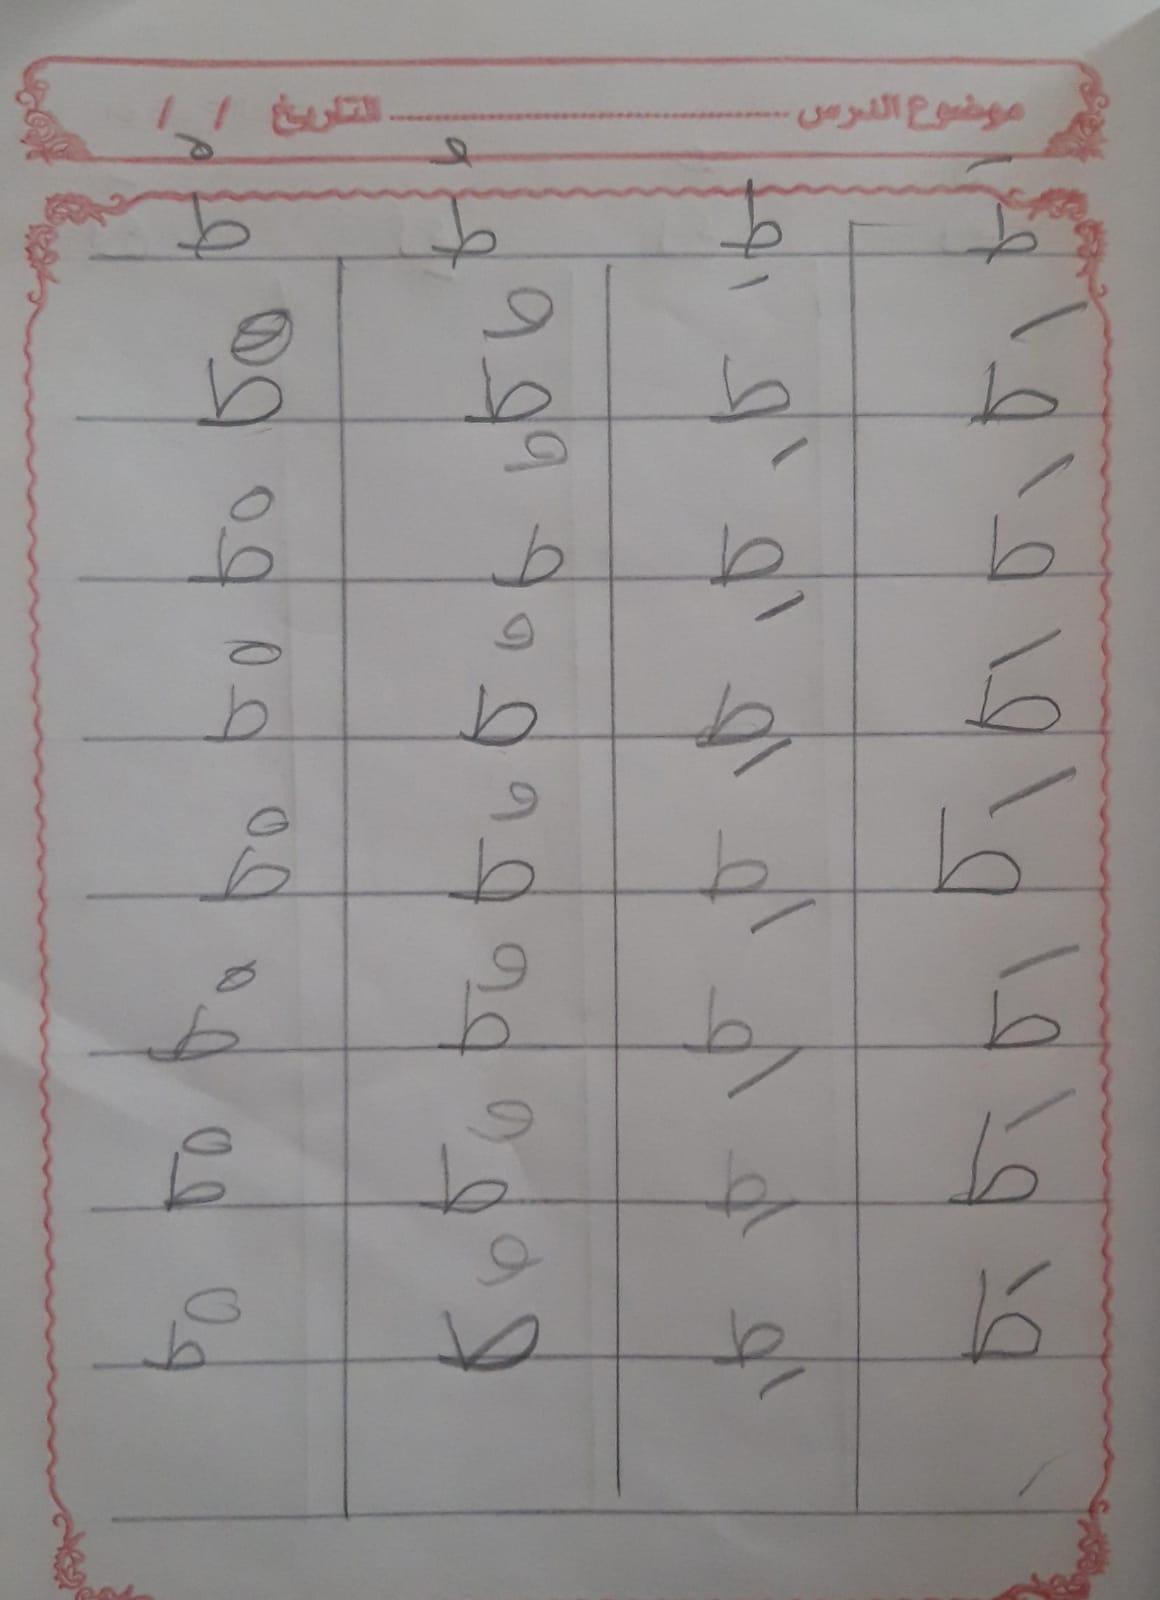 موضوع الدرس ........................ التاريخ / /
طَ طِ طُ طْ
طَ طِ طُ طْ
طَ طِ طُ طْ
طَ طِ طُ طْ
طَ طِ طُ طْ
طَ طِ طُ طْ
طَ طِ طُ طْ
طَ طِ طُ طْ